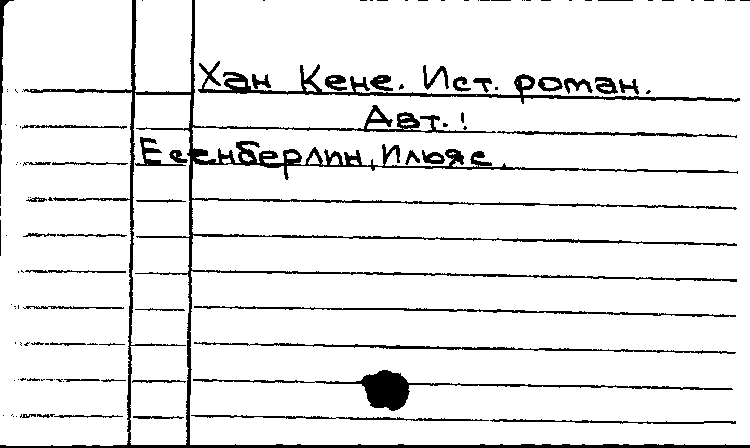 Хан Кене. Ист. роман.
Авт.!
Есенберлин, Ильяс.